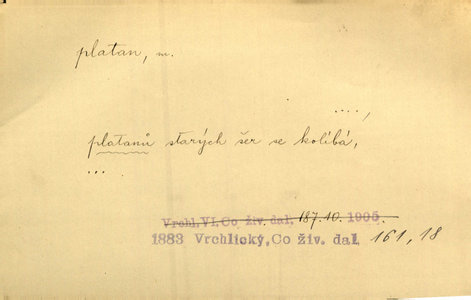 platan, m.
....,
platanů starých šer se kolíbá,
...
Vrchl, VI, Co živ. dal, 187.10. 1905.
1883 Vrchlický, Co živ. dal, 161, 18